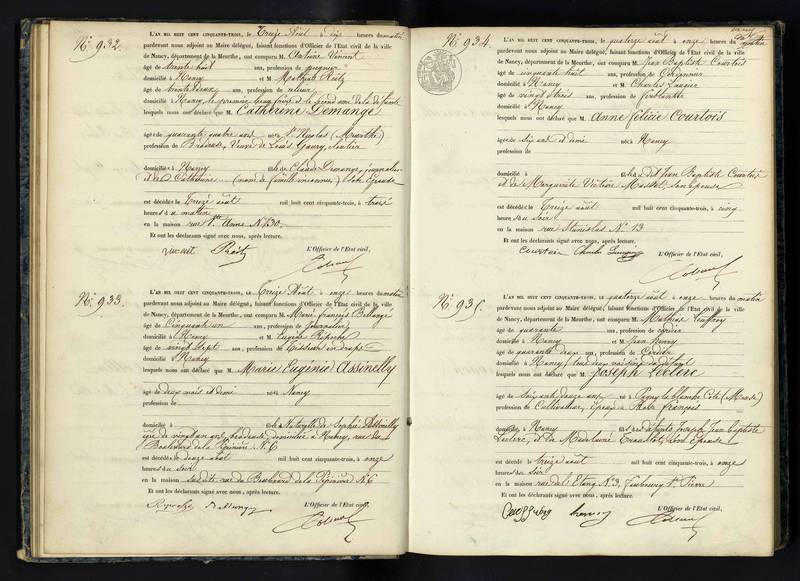 N° 932.
L'AN MIL HUIT CENT CINQUANTE-TROIS, le Treize Août à dix heures du matin
pardevant nous adjoint au Maire délégué, faisant fonctions d'Officier de l'État civil de la ville
de Nancy, département de la Meurthe, ont comparu M. Antoine Vincent
âgé de trente huit ans, profession de peignier
domicilié à Nancy et M. Mathieu Reitz
âgé de trente deux ans, profession de
domicilié à Nancy, le premier beau frère et le second ami de la défunte
lesquels nous ont déclaré que M. Catherine Demange
âgée de quarante quatre ans née à St Nicolas (Meurthe)
profession de Brodeuse, Veuve de Louis Gaury,
domiciliée à Nancy fille de Claude Demange, journalier
et de Catherine (nom de famille inconnu) son épouse
est décédée le treize août mil huit cent cinquante-trois, à
heures du matin
en la maison rue Ste Anne N° 30.
Et ont les déclarants signé avec nous, après lecture.
L'Officier de l'État civil,
N° 933.
L'AN MIL HUIT CENT CINQUANTE-TROIS, le Treize Août à onze heures du matin
pardevant nous adjoint au Maire délégué, faisant fonctions d'Officier de l'État civil de la ville
de Nancy, département de la Meurthe, ont comparu M. Marie François Bellangé
âgé de Cinquante un ans, profession de journalier
domicilié à Nancy et M. Eugène
âgé de vingt sept ans, profession de Tisseur en draps
domicilié à Nancy
lesquels nous ont déclaré que M. Marie Eugénie Assinelly
âgée de deux mois et demi née à Nancy
profession de
domicilié à fille Naturelle de Sophie Assinelly
âgée de vingt un ans, brodeuse, domiciliée à Nancy, rue du
Boulevard de la Pépinière N. 6
est décédée le douze août mil huit cent cinquante-trois, à onze
heures du soir
en la maison susdite rue du Boulevard de la Pépinière N. 6
Et ont les déclarants signé avec nous, après lecture.
L'Officier de l'État civil,
N° 934.
L'AN MIL HUIT CENT CINQUANTE-TROIS, le quatorze août à onze heures du matin
pardevant nous adjoint au Maire délégué, faisant fonctions d'Officier de l'État civil de la ville
de Nancy, département de la Meurthe, ont comparu M. Jean Baptiste Courtois
âgé de cinquante huit ans, profession de Cordonnier
domicilié à Nancy et M. Charles
âgé de vingt trois ans, profession de ferblantier
domicilié à Nancy
lesquels nous ont déclaré que M. Anne Félicie Courtois
âgée de six ans et demi née à Nancy
profession de
domicilié à fille du dit Jean Baptiste Courtois
et de Marguerite Victoire Masset, son épouse
est décédée le Treize août mil huit cent cinquante-trois, à cinq
heures du soir
en la maison rue Stanislas N° 13
Et ont les déclarants signé avec nous, après lecture.
L'Officier de l'État civil,
N° 935.
L'AN MIL HUIT CENT CINQUANTE-TROIS, le quatorze août à onze heures du matin
pardevant nous adjoint au Maire délégué, faisant fonctions d'Officier de l'État civil de la ville
de Nancy, département de la Meurthe, ont comparu M. Mathias
âgé de quarante ans, profession de cordier
domicilié à Nancy et M. Jean Henry
âgé de quarante deux ans, profession de Cordier
domicilié à Nancy tous deux voisins du défunt
lesquels nous ont déclaré que M. Joseph Leclerc
âgé de soixante douze ans né à Pagny la blanche Côte (Meuse)
profession de Cultivateur, époux de François
domicilié à Nancy fils de défunts Joseph Jean Baptiste
Leclerc, et de Madeleine son épouse
est décédé le treize août mil huit cent cinquante-trois, à onze
heures du soir
en la maison rue de l'Étang N° 3, faubourg St Pierre
Et ont les déclarants signé avec nous, après lecture.
L'Officier de l'État civil,